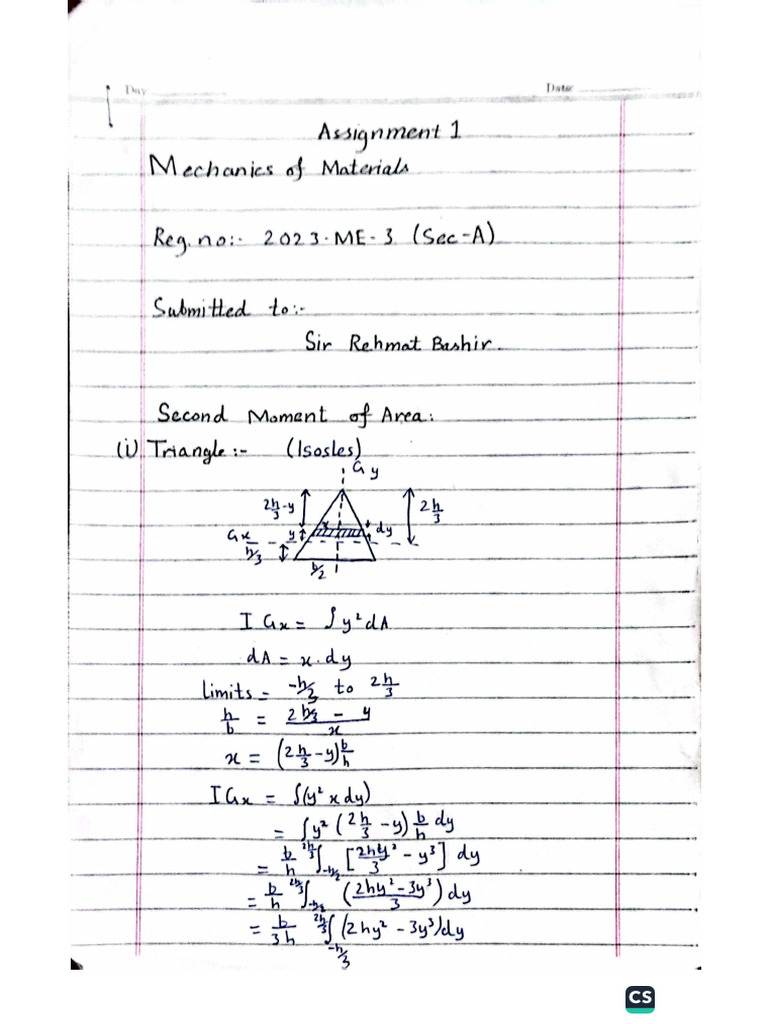 Day
Date
Assignment 1
Mechanics of Materials
Reg. no:- 2023-ME-3 (Sec-A)
Submitted to:-
Sir Rehmat Bashir.
Second Moment of Area:
(i) Triangle:- (Isosles)
G y
2h/3-y
2h/3
x
dy
Gx
y
h/3
b/2
I Gx = ∫y²dA
dA = x.dy
limits = -h/3 to 2h/3
h/b = (2h/3 - y)/x
x = (2h/3 - y)b/h
IGx = ∫(y² x dy)
= ∫y² (2h/3 - y) b/h dy
= b/h 2h/3∫-h/2 [2hy²/3 - y³] dy
= b/h 2h/3∫-h/3 ((2hy² - 3y³)/3) dy
= b/3h 2h/3∫-h/3 (2hy² - 3y³)dy
CS